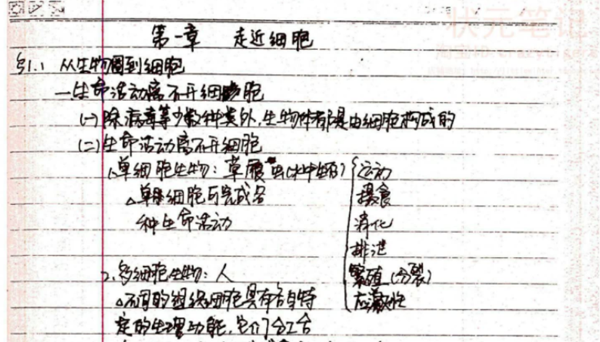 状元笔记
第一章 走近细胞
§1.1 从生物圈到细胞
一.生命活动离不开细胞
(一)除病毒等少数种类外,生物体都是由细胞构成的
(二)生命活动离不开细胞
1.单细胞生物:草履虫
△单细胞可完成各
种生命活动
运动
摄食
消化
排泄
繁殖(分裂)
应激性
2.多细胞生物:人
△不同的组织细胞具有各自特
定的生理功能,它们分工合